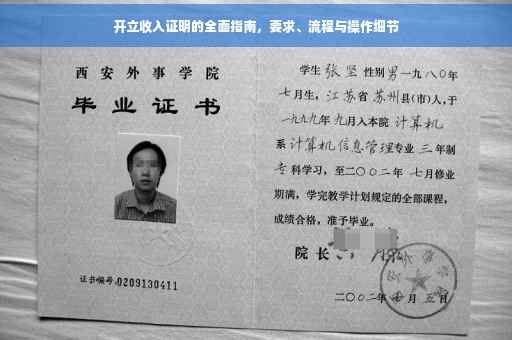 开立收入证明的全面指南，要求、流程与操作细节
西安外事学院
毕业证书
证书编号:0209130411
学生 张坚 性别 男 一九八〇年
七月生，江苏省 苏州县(市)人,于
一九九九年 九月入本院 计算机
系 计算机信息管理专业 三 年制
专科学习，至二〇〇二年 七月修业
期满，学完教学计划规定的全部课程，
成绩合格，准予毕业。
院长
二〇〇二年 七月 五日